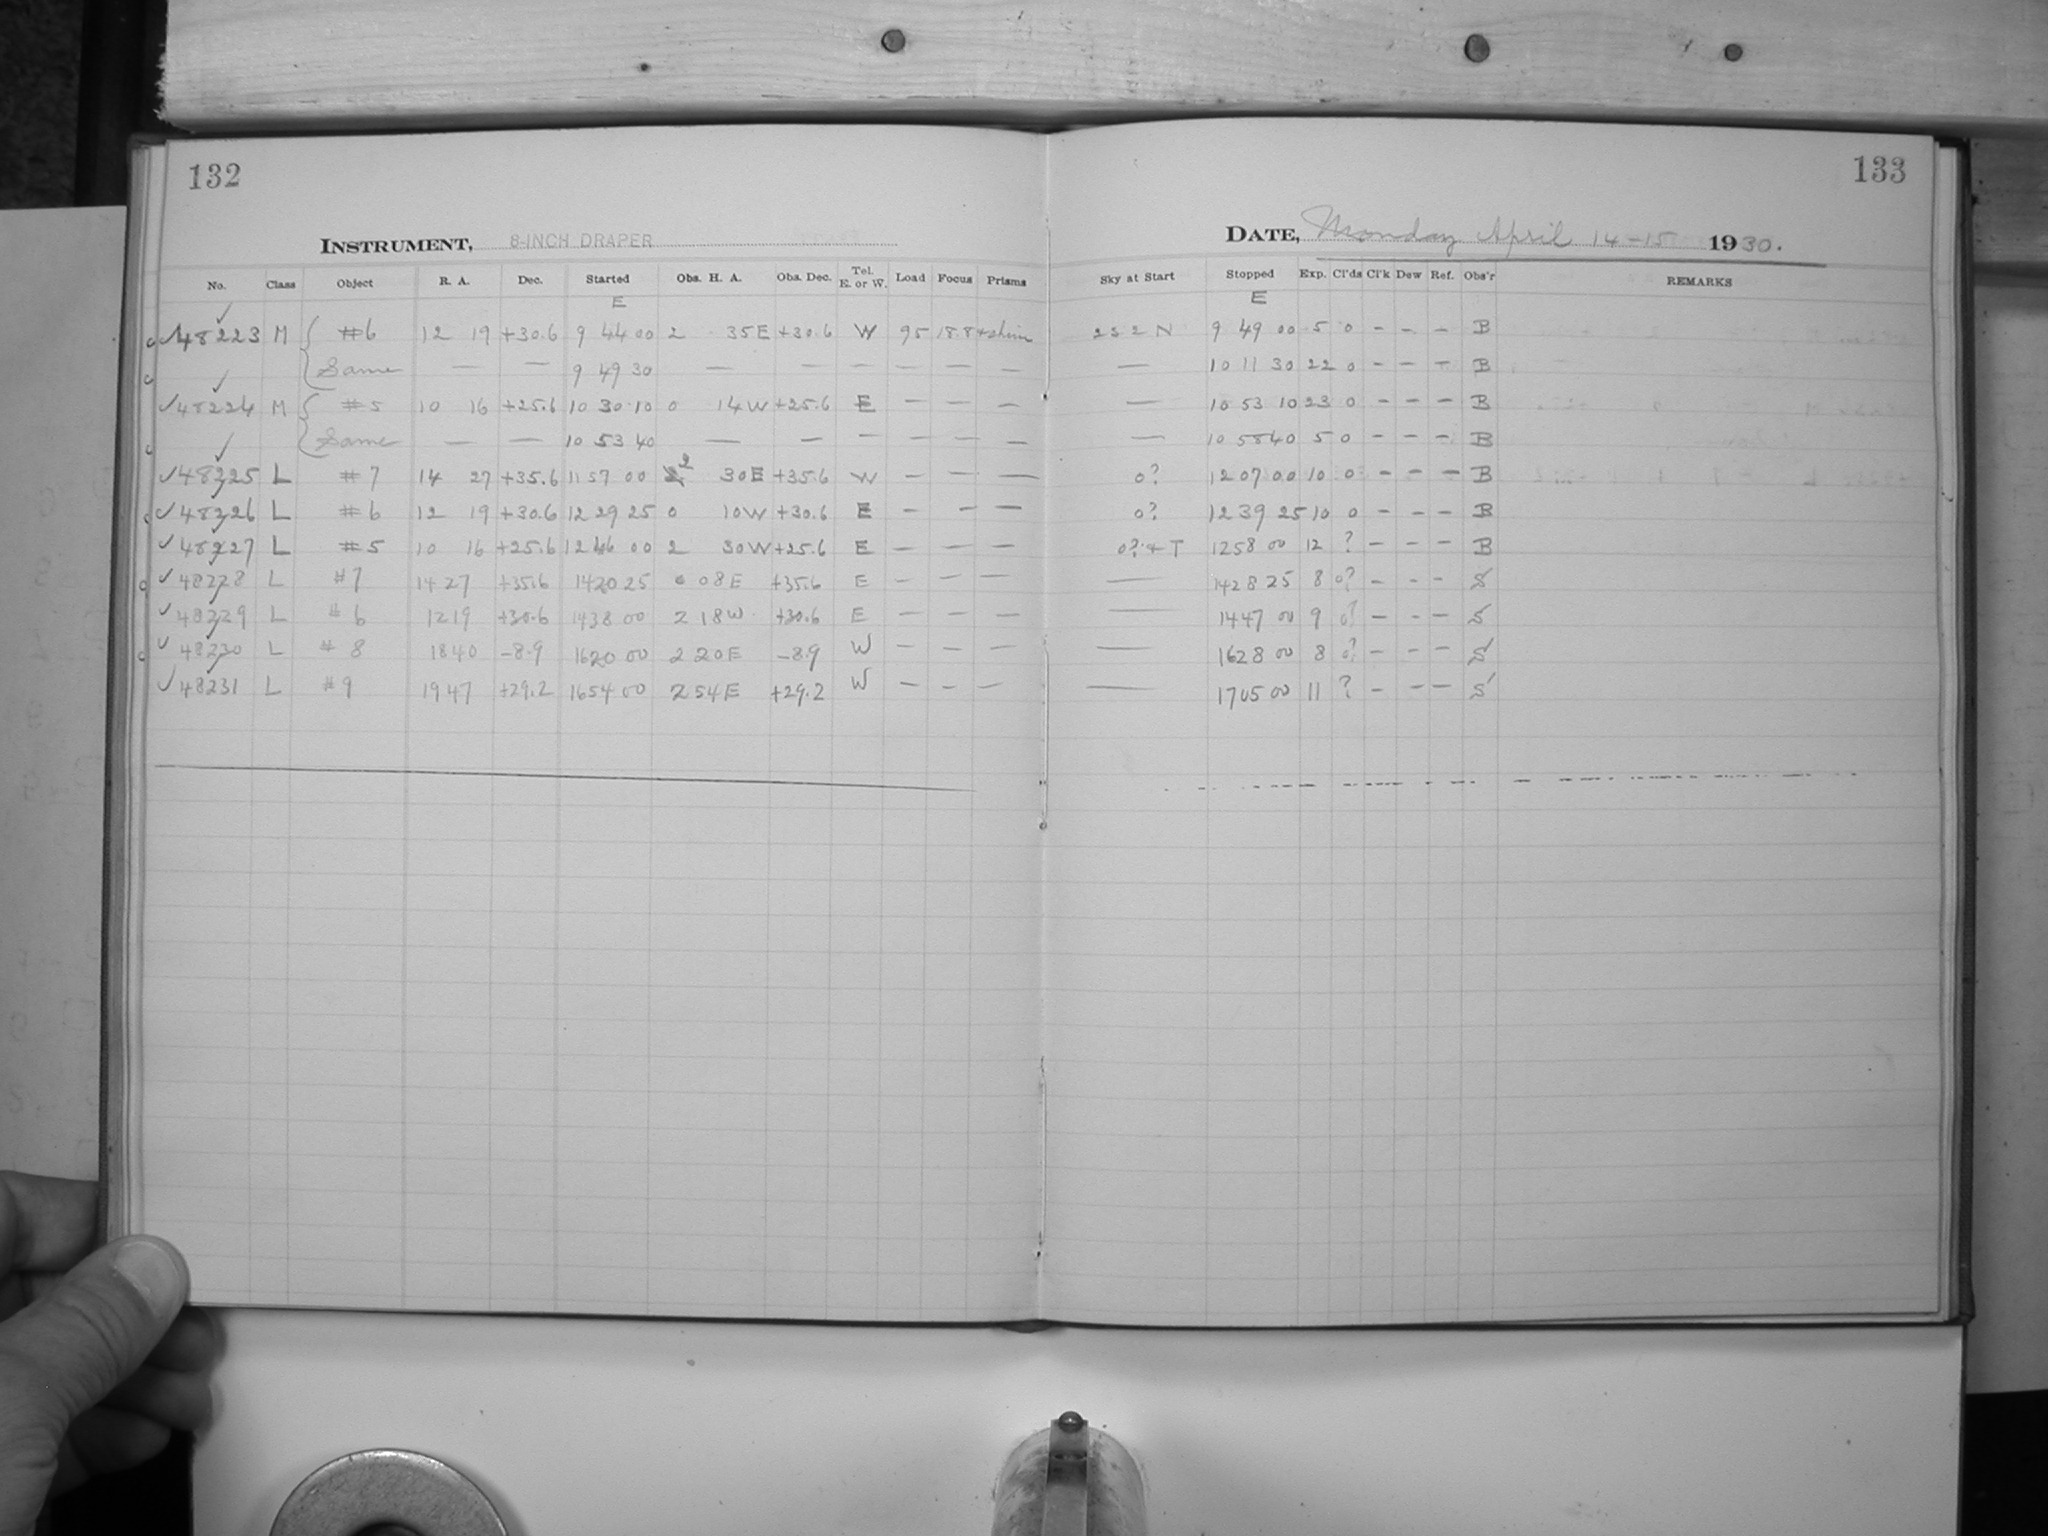 132
133
INSTRUMENT, 8-INCH DRAPER
DATE, Monday April 14-15 1930.
No. Class Object R. A. Dec. Started Obs. H. A. Obs. Dec. Tel. E. or W. Load Focus Prisms Sky at Start Stopped Exp. Cl'ds Cl'k Dew Ref. Obs'r REMARKS
E E
✓48223 M #6 12 19 +30.6 9 44 00 2 35E +30.6 W 95 18.8 2 S 2 N 9 49 00 5 0 - - - B
Same — — 9 49 30 — — — — — — — 10 11 30 22 0 - - - B
✓48224 M #5 10 16 +25.6 10 30 10 0 14W +25.6 E — — — — 10 53 10 23 0 - - - B
Same — — 10 53 40 — — — — — — — 10 58 40 5 0 - - - B
✓48225 L #7 14 27 +35.6 11 57 00 2 30E +35.6 W — — — 0? 12 07 00 10 0 - - - B
✓48226 L #6 12 19 +30.6 12 29 25 0 10W +30.6 E — — — 0? 12 39 25 10 0 - - - B
✓48227 L #5 10 16 +25.6 12 46 00 2 30W +25.6 E — — — 0? + T 12 58 00 12 ? - - - B
✓48228 L #7 14 27 +35.6 14 20 25 0 08E +35.6 E — — — — 14 28 25 8 0? - - - S
✓48229 L #6 12 19 +30.6 14 38 00 2 18W +30.6 E — — — — 14 47 00 9 0? - - - S
✓48230 L #8 18 40 -8.9 16 20 00 2 20E -8.9 W — — — — 16 28 00 8 0? - - - S
✓48231 L #9 19 47 +29.2 16 54 00 2 54E +29.2 W — — — — 17 05 00 11 ? - - - S